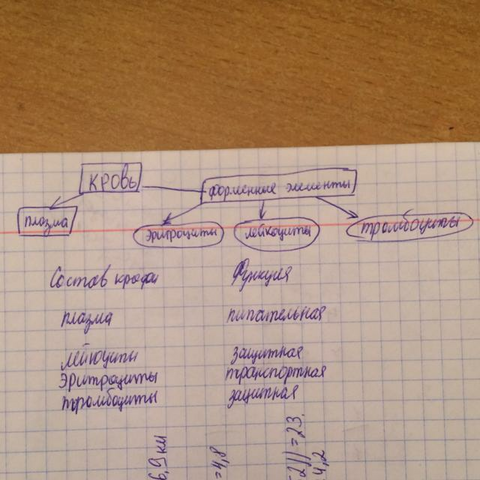 кровь
форменные элементы
плазма
эритроциты лейкоциты тромбоциты
Состав крови Функция
плазма питательная
лейкоциты защитная
эритроциты транспортная
тромбоциты защитная
6,9 км
=4,8
=23.
4,2